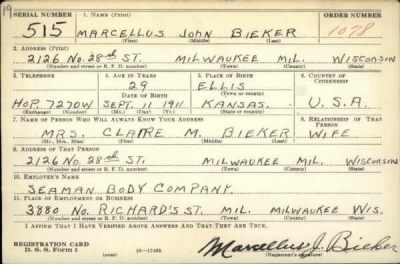 19
SERIAL NUMBER 1. NAME (Print) ORDER NUMBER
515 MARCELLUS JOHN BIEKER 1078
(First) (Middle) (Last)
2. ADDRESS (Print)
2126 No. 28th ST. MILWAUKEE MIL. WISCONSIN
(Number and street or R. F. D. number) (Town) (County) (State)
3. TELEPHONE 4. AGE IN YEARS 5. PLACE OF BIRTH 6. COUNTRY OF CITIZENSHIP
29 ELLIS
DATE OF BIRTH (Town or county)
HOP. 7270W SEPT. 11 1911 KANSAS. U.S.A.
(Exchange) (Number) (Mo.) (Day) (Yr.) (State or country)
7. NAME OF PERSON WHO WILL ALWAYS KNOW YOUR ADDRESS 8. RELATIONSHIP OF THAT PERSON
MRS. CLAIRE M. BIEKER WIFE
(Mr., Mrs., Miss) (First) (Middle) (Last)
9. ADDRESS OF THAT PERSON
2126 No. 28th ST. MILWAUKEE MIL. WISCONSIN
(Number and street or R. F. D. number) (Town) (County) (State)
10. EMPLOYER'S NAME
SEAMAN BODY COMPANY.
11. PLACE OF EMPLOYMENT OR BUSINESS
3880 No. RICHARD'S ST. MIL. MILWAUKEE WIS.
(Number and street or R. F. D. number) (Town) (County) (State)
I AFFIRM THAT I HAVE VERIFIED ABOVE ANSWERS AND THAT THEY ARE TRUE.
REGISTRATION CARD
D. S. S. Form 1 (over) Marcellus J. Bieker
(Registrant's signature)